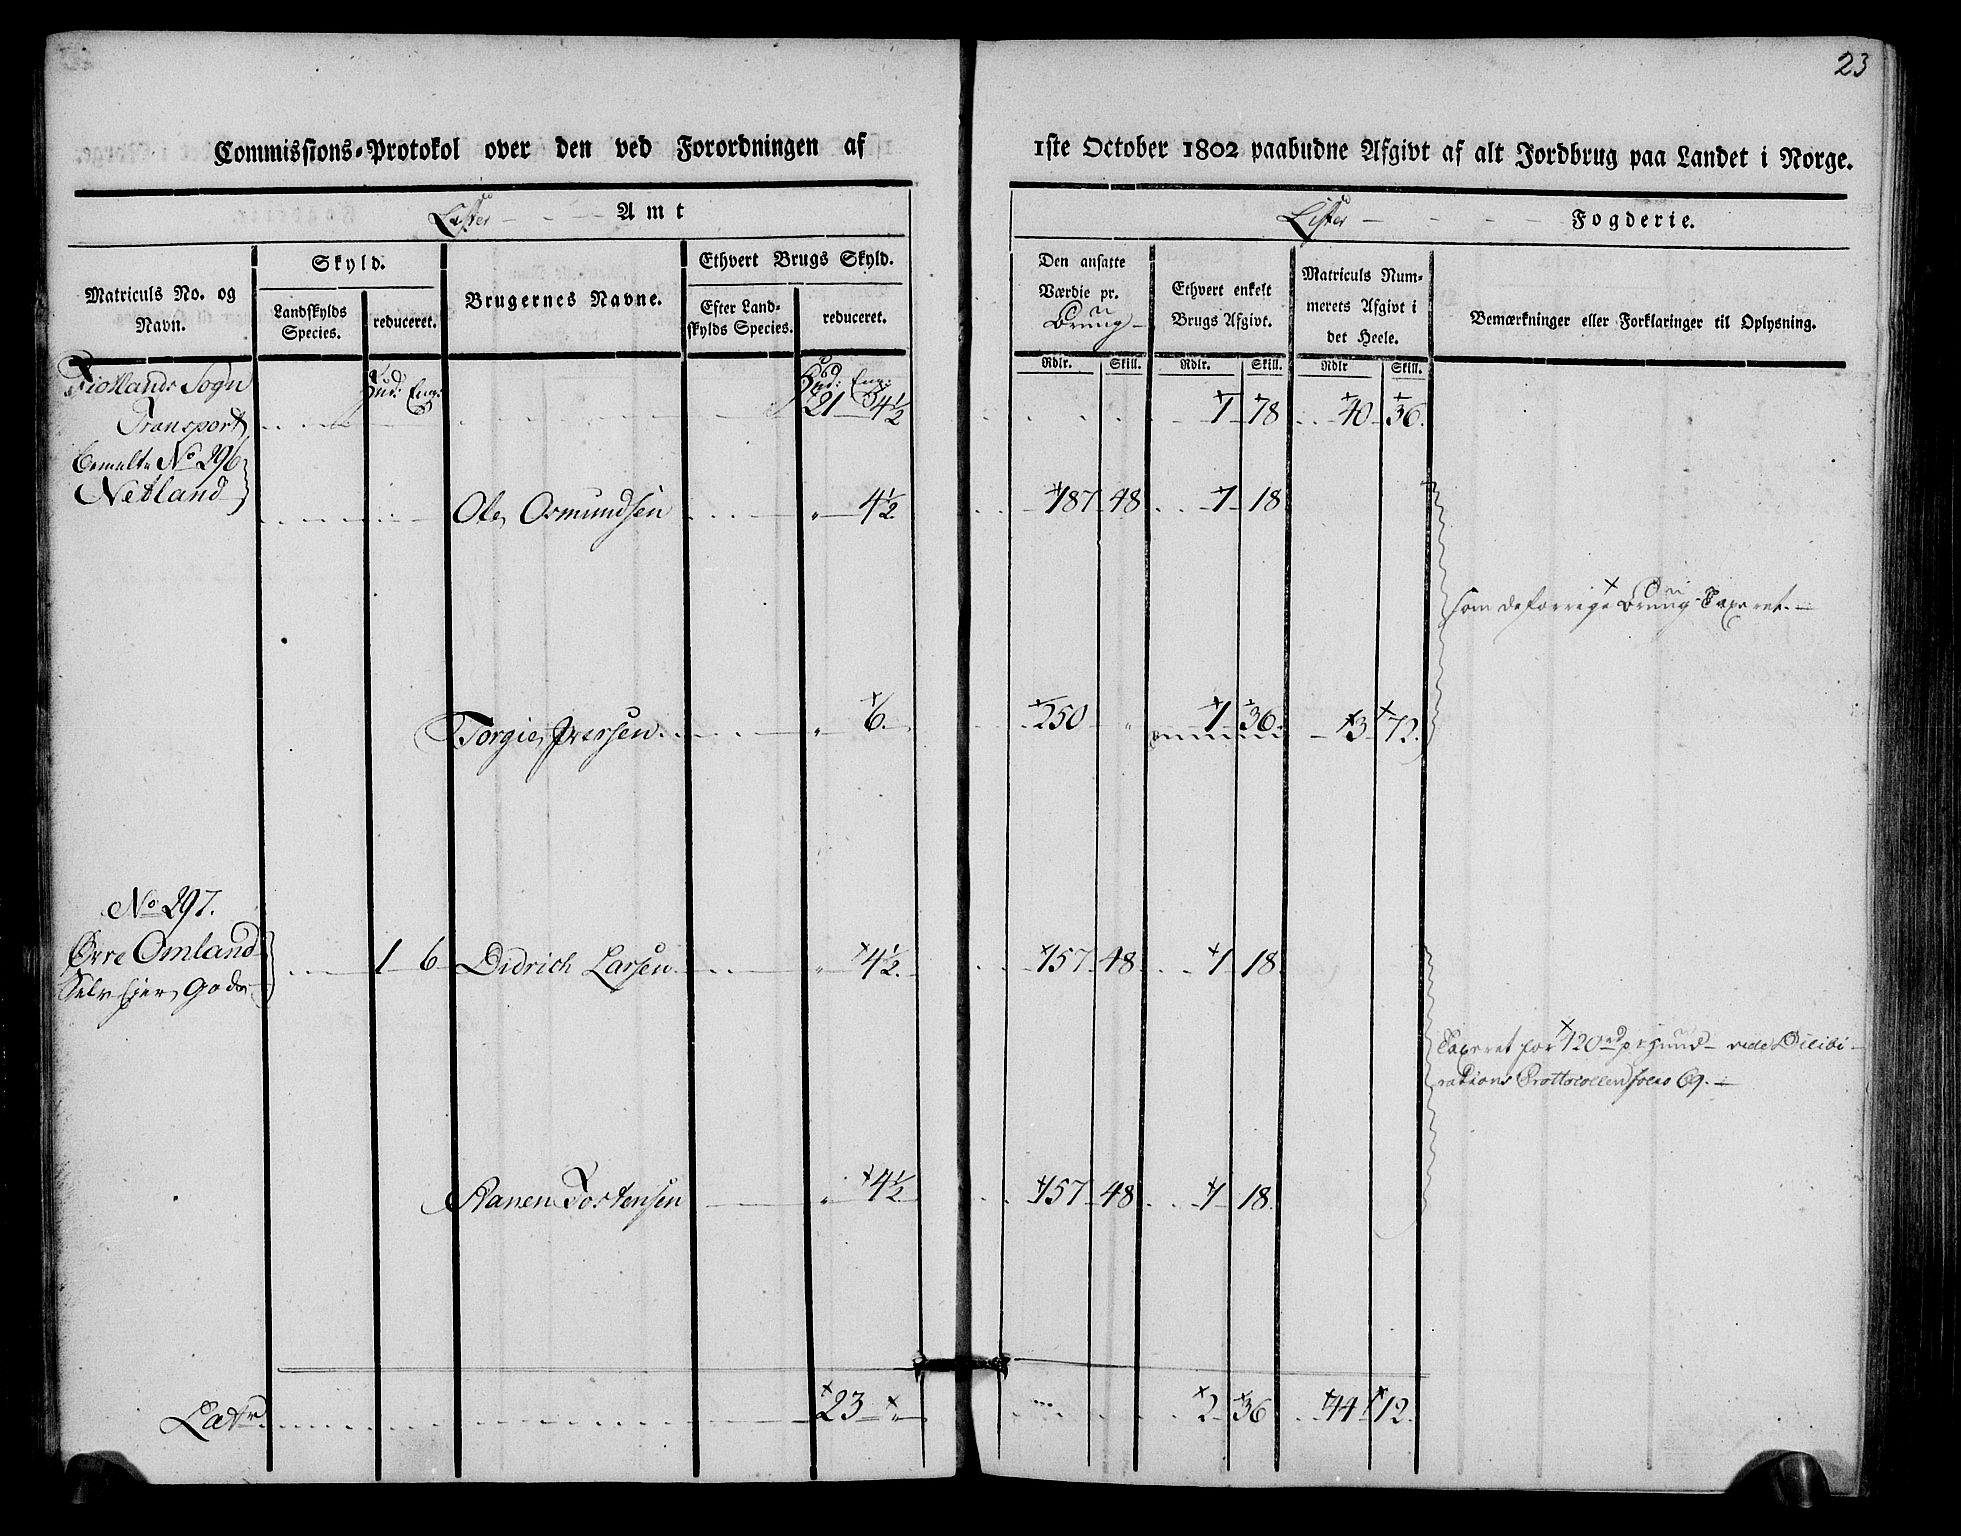 23
Commissions-Protokol over den ved Forordningen af 1ste October 1802 paabudne Afgivt af alt Jordbrug paa Landet i Norge.
Lister Amt Lister Fogderie.
Matriculs No. og Navn.
Skyld.
Landskylds Species.
reduceret.
Brugernes Navne.
Ethvert Brugs Skyld.
Efter Landskylds Species.
reduceret.
Den ansatte Værdie pr. Brug
Ethvert enkelt Brugs Afgivt.
Matriculs Nummerets Afgivt i det Heele.
Bemærkninger eller Forklaringer til Oplysning.
Rdlr. Skill. Rdlr. Skill. Rdlr Skill.
Fiotlands Sogn Hud: Eng: Hud: Eng:
Transport 21 3 4½ 1 78 40 36.
No 296
Netland
Ole Osmundsen " 4½ 187 48 1 18
som de forrige Brug Taxeret.
Torgie Iversen. " 6. 250 " 1 36. 3 72.
No 297.
Øvre Omland 1 6 Didrich Larsen " 4½. 157 48 1 18
Selv Ejer Gods
Taxeret for 120 rd pr Hud vide Delibi-
rations Prottocollen folio 69.
Aanen Tostensen " 4½ 157 48 1 18.
Latr. 23 " 2 36 44 12.